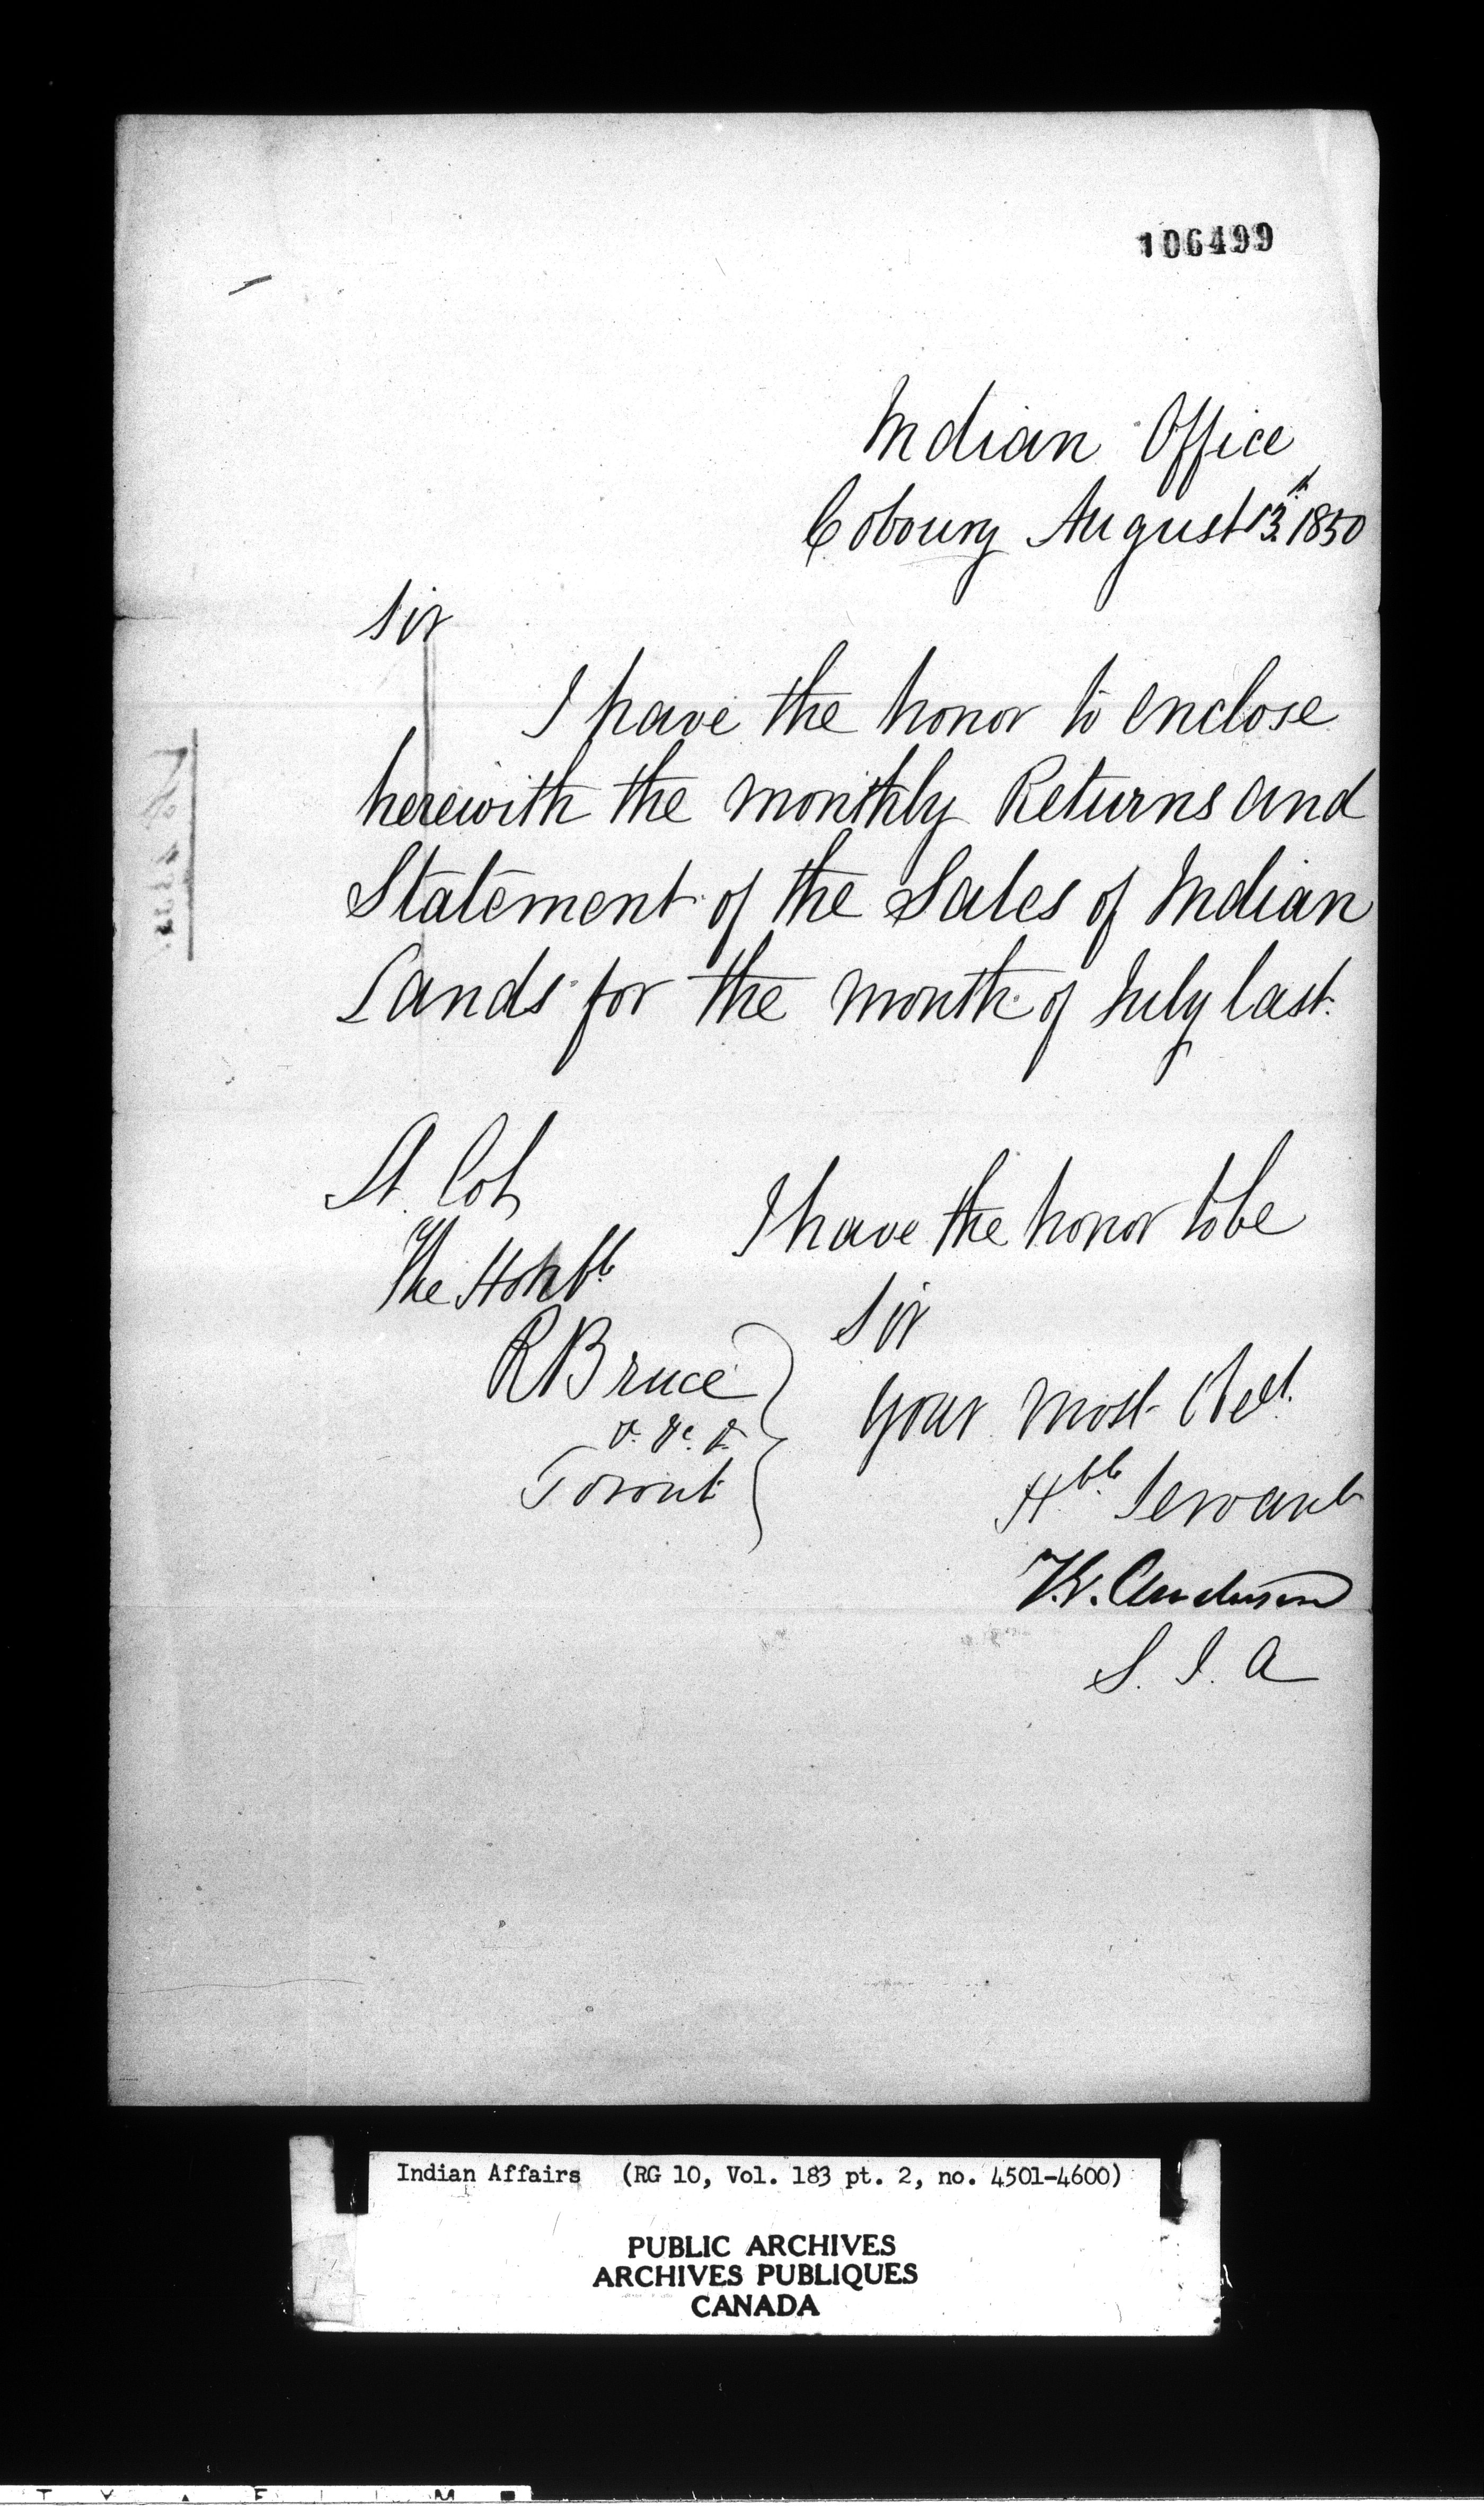 106499
Indian Office
Cobourg August 13th 1850
Sir
I have the honor to enclose
herewith the monthly Returns and
Statement of the Sales of Indian
Lands for the month of July last.
Lt. Col
The Honble
R Bruce
&. &c. &.
Toront
I have the honor to be
Sir
Your most Obedt.
Hble Servant
T.G. Anderson
S. I. A
Indian Affairs (RG 10, Vol. 183 pt. 2, no. 4501-4600)
PUBLIC ARCHIVES
ARCHIVES PUBLIQUES
CANADA